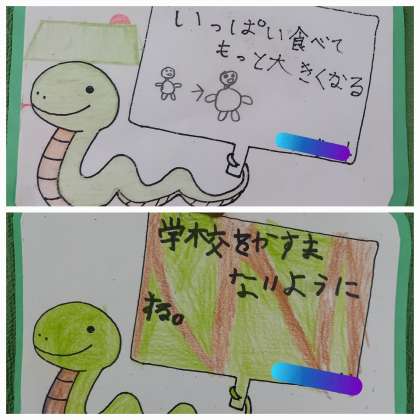 いっぱい食べて
もっと大きくなる
学校をかすま
ないように
する。